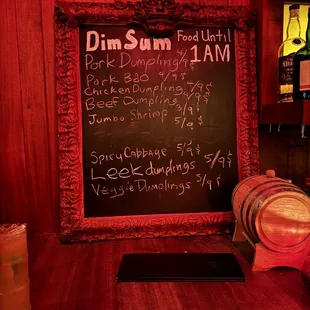 DimSum Food Until
1AM
Pork Dumpling 4/9$
Pork Bao 4/9$
Chicken Dumpling 4/9$
Beef Dumpling 5/9$
Jumbo Shrimp 5/9$
5/9$
Spicy Cabbage 5/9$
Leek dumplings 5/9$
Veggie Dumplings 5/9$